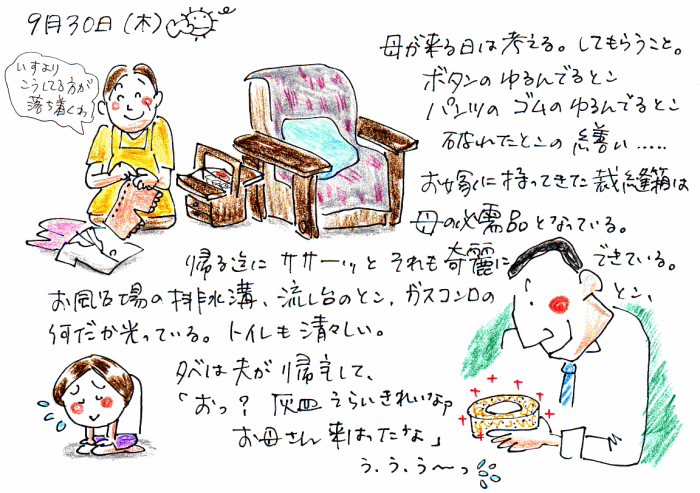 9月30日(木)
いすより
こうしてる方が
落ち着くわ
母が来る日は考える。してもらうこと。
ボタンのゆるんでるとこ
パンツのゴムのゆるんでるとこ
破れたとこの繕い.....
お嫁に持ってきた裁縫箱は
母の必需品となっている。
帰る迄にササーッとそれも奇麗にできている。
お風呂場の排水溝、流し台のとこ、ガスコンロのとこ、
何だか光っている。トイレも清々しい。
夕べは夫が帰宅して、
「おっ?灰皿えらいきれいなァ
お母さん来はったなな」
う、う、う〜っ